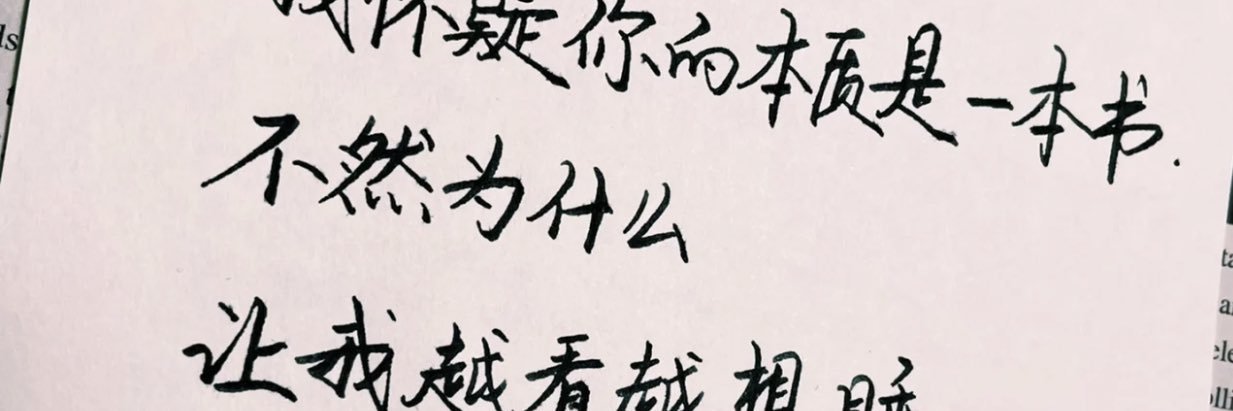 我怀疑你的本质是一本书.
不然为什么
让我越看越想睡
ls
ta
a
ele
olli